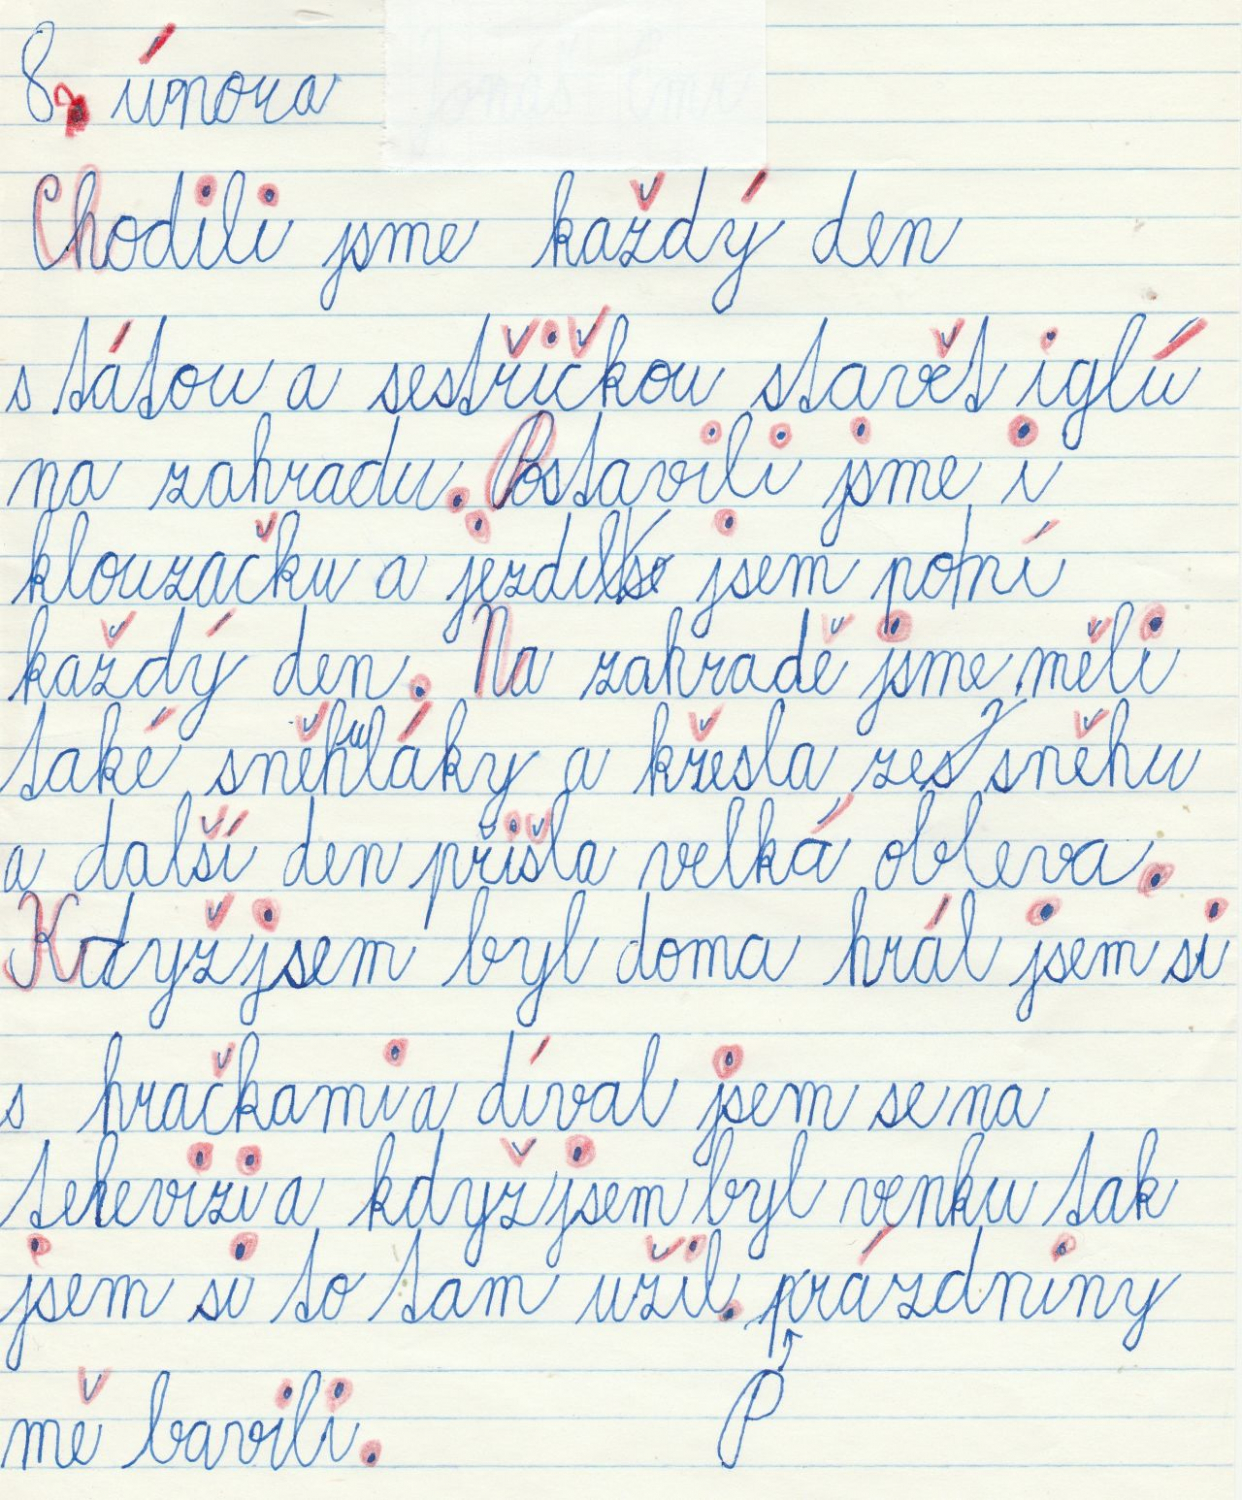 8. února
Chodili jsme každý den
s tátou a sestřičkou stavět iglú
na zahradu. Postavili jsme i
klouzačku a jezdil jsem po ní
každý den. Na zahradě jsme měli
také sněhuláky a křesla ze sněhu
a další den přišla velká obleva.
Když jsem byl doma hrál jsem si
s hračkami a díval jsem se na
televizi a když jsem byl venku tak
jsem si to tam užil. prázdniny
mě bavili.
P